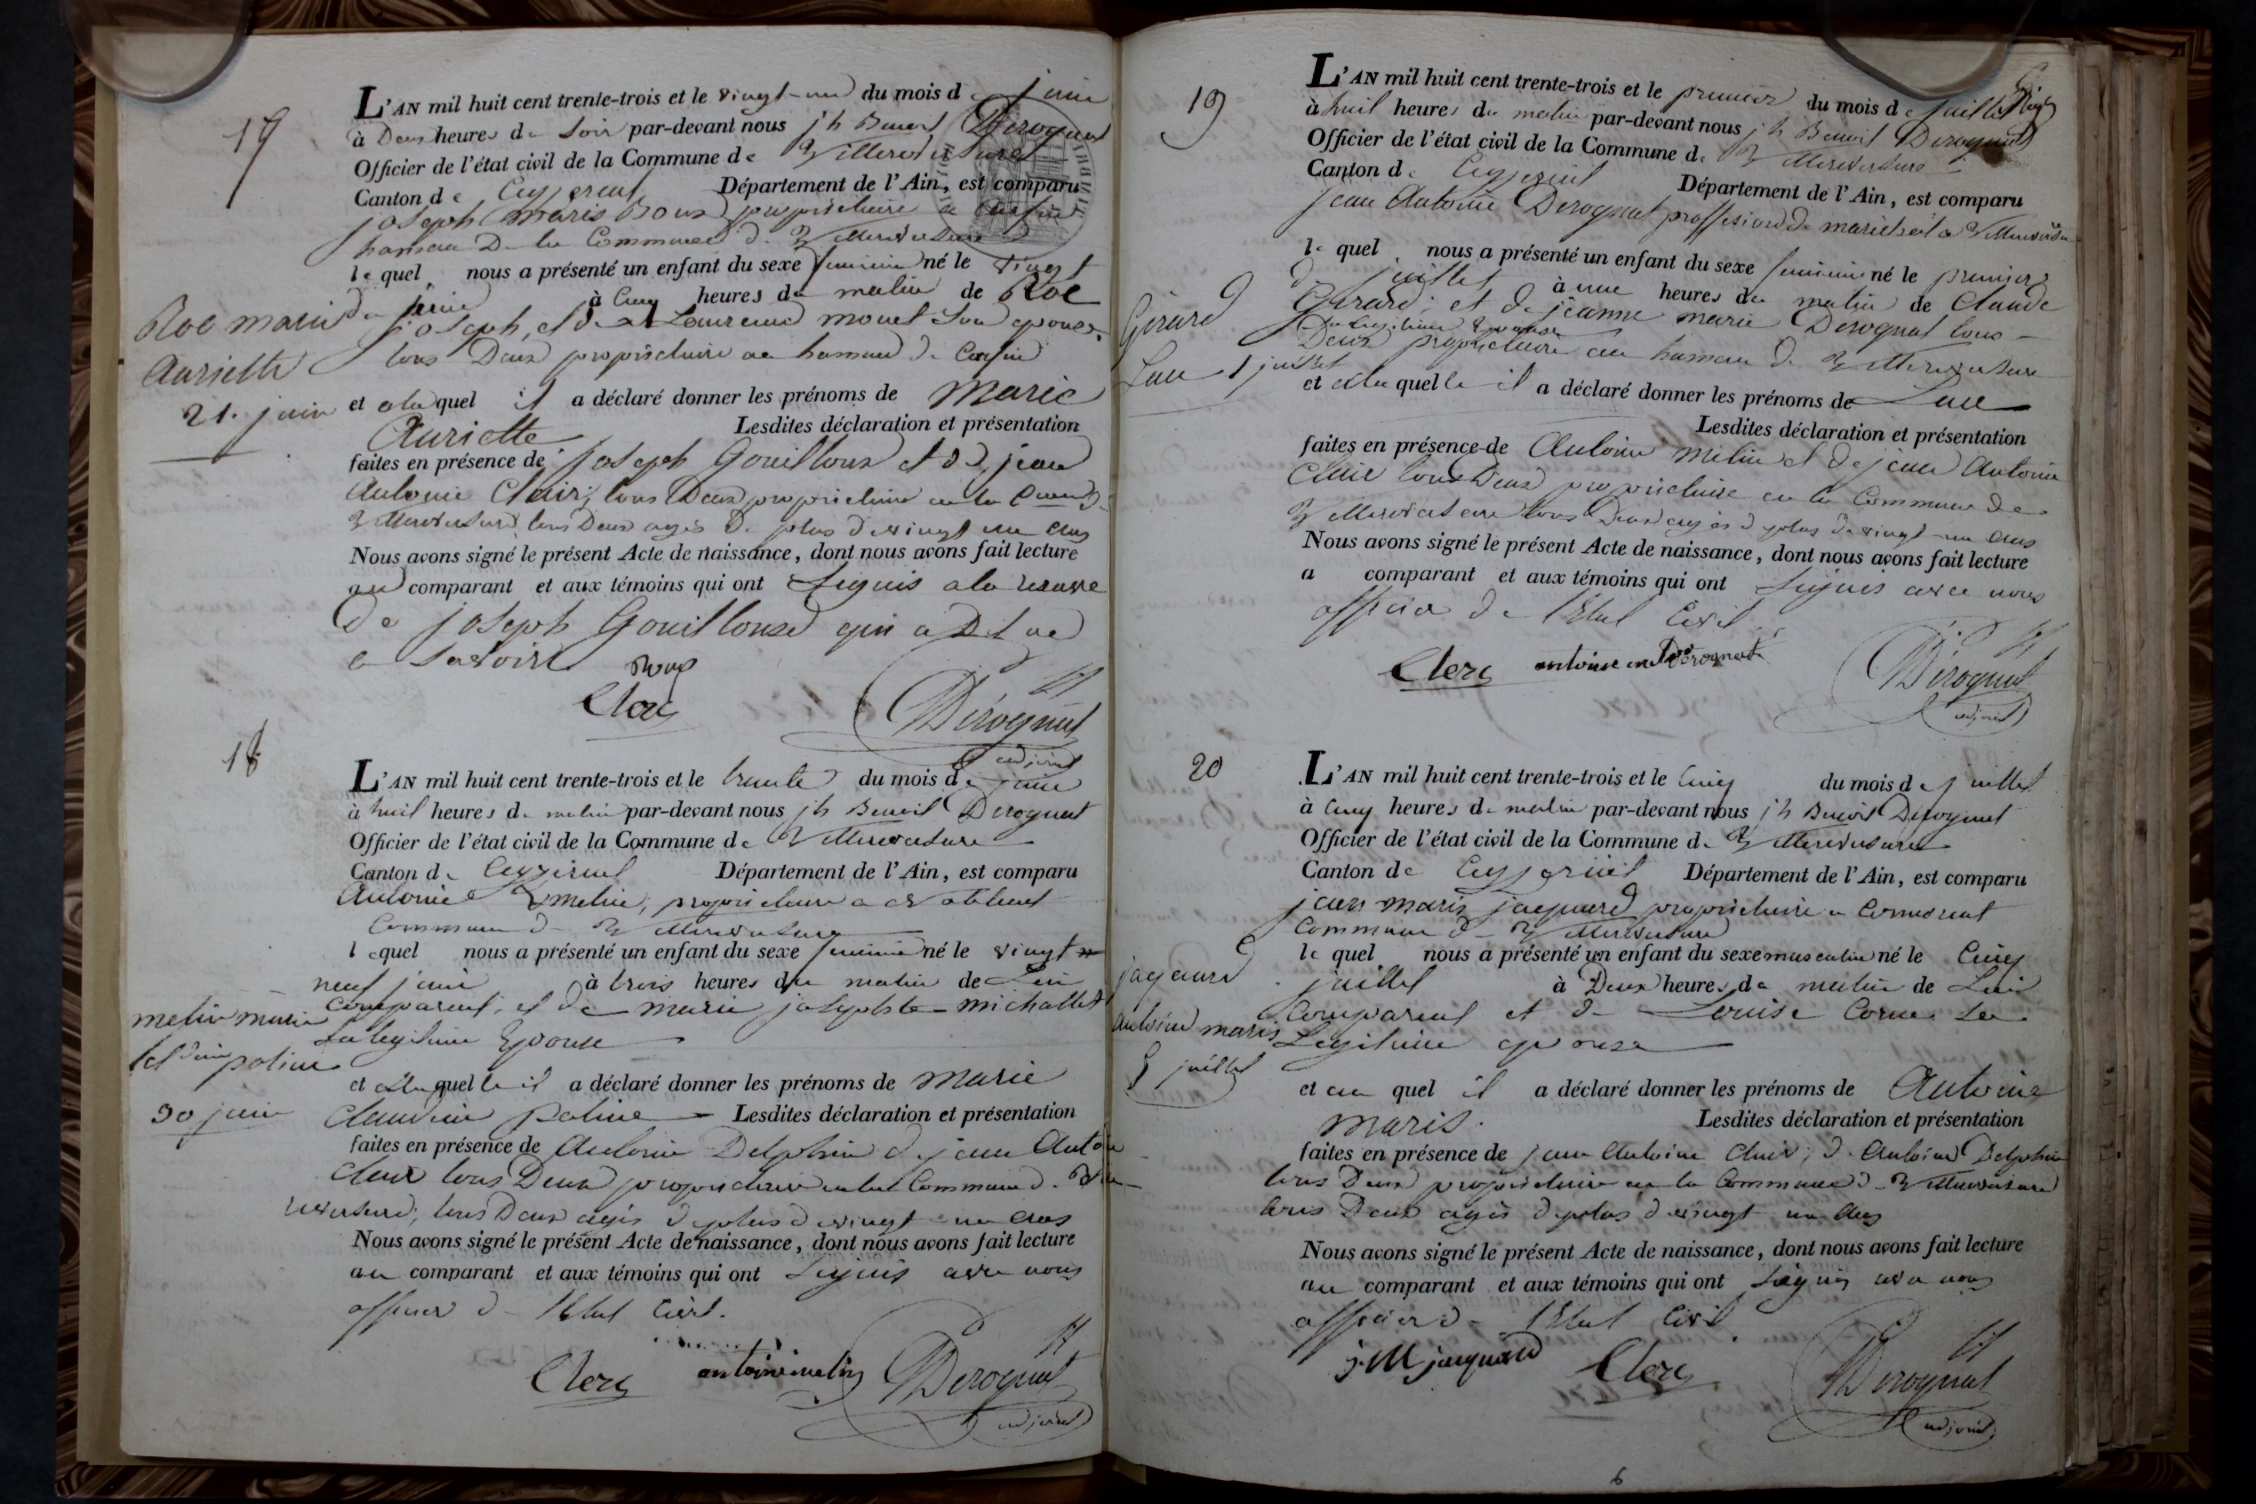 L'AN mil huit cent trente-trois et le vingt-un du mois de juin
à Deux heures du Soir par-devant nous jh Benoit Derognat
Officier de l'état civil de la Commune de Villereversure
Canton de Ceyzeriat Département de l'Ain, est comparu
joseph marie Roux propriétaire a
hameau De la Commune de Villereversure
lequel nous a présenté un enfant du sexe feminin né le vingt
du juin à Cinq heures du matin de Roe
joseph, et de Laurence monet Son epouse
tous Deux propriétaire au hameau de
Roe marie
Auriette
21. juin
et a la quel il a déclaré donner les prénoms de Marie
Auriette Lesdites déclaration et présentation
faites en présence de joseph Gouilloux et de jean
Antoine Clair; tous Deux propriétaire en la
Villereversure tous Deux agés de plus de vingt un ans
Nous avons signé le présent Acte de naissance, dont nous avons fait lecture
au comparant et aux témoins qui ont Signés a la reserve
de joseph Gouilloux qui a Dit ne
Savoir
Roux
Clerc
Derognat
adjoint
18
L'AN mil huit cent trente-trois et le trente du mois de juin
à huit heures du matin par-devant nous jh Benoit Derognat
Officier de l'état civil de la Commune de Villereversure
Canton de Ceyzeriat Département de l'Ain, est comparu
Antoine metin, propriétaire a
Commune de Villereversure
lequel nous a présenté un enfant du sexe feminin né le vingt
neuf juin à trois heures du matin de Lui
Comparent, et de marie josephte michallet
Sa legitime Epouse
metin marie
poline
30 juin
et a la quelle il a déclaré donner les prénoms de marie
Claudine poline Lesdites déclaration et présentation
faites en présence de Antoine Delphin d. jean Antoine
Clair tous Deux propriétaire en la Commune de Ville
reversure, tous Deux agés de plus de vingt un ans
Nous avons signé le présent Acte de naissance, dont nous avons fait lecture
au comparant et aux témoins qui ont Signés avec nous
officier de l'Etat Civil.
Clerc antoine metin Derognat
adjoint
19
L'AN mil huit cent trente-trois et le premier du mois de juillet
à huit heures du matin par-devant nous jh Benoit Derognat
Officier de l'état civil de la Commune de Villereversure
Canton de Ceyzeriat Département de l'Ain, est comparu
jean Antoine Derognat proffession de marichal a Villereversure
lequel nous a présenté un enfant du sexe feminin né le premier
de juillet à une heures du matin de Claude
Girard; et de jeanne marie Derognat tous
Sa legitime Epouse
Deux propriétaire au hameau de Villereversure
Girard
1 juillet
et a la quelle il a déclaré donner les prénoms de
Lesdites déclaration et présentation
faites en présence de Antoine metin et de jean Antoine
Clair tous Deux propriétaire en la Commune de
Villereversure tous Deux agés de plus de vingt un ans
Nous avons signé le présent Acte de naissance, dont nous avons fait lecture
a comparant et aux témoins qui ont Signés avec nous
officier de l'Etat Civil
Clerc antoine metin Derognat Derognat
adjoint
20
L'AN mil huit cent trente-trois et le Cinq du mois de juillet
à Cinq heures du matin par-devant nous jh Benoit Derognat
Officier de l'état civil de la Commune de Villereversure
Canton de Ceyzeriat Département de l'Ain, est comparu
jean marie jaquard propriétaire a
Commune de Villereversure
lequel nous a présenté un enfant du sexe masculin né le Cinq
juillet à Deux heures du matin de Lui
Comparent et de Louise Sa
Legitime epouse
jaquard
Antoine marie
5 juillet
et au quel il a déclaré donner les prénoms de Antoine
marie. Lesdites déclaration et présentation
faites en présence de jean Antoine Clair; d. Antoine Delphin
tous Deux propriétaire en la Commune de Villereversure
tous Deux agés de plus de vingt un ans
Nous avons signé le présent Acte de naissance, dont nous avons fait lecture
au comparant et aux témoins qui ont Signés avec nous
officier de l'Etat Civil
j. M jaquard Clerc Derognat
adjoint
6